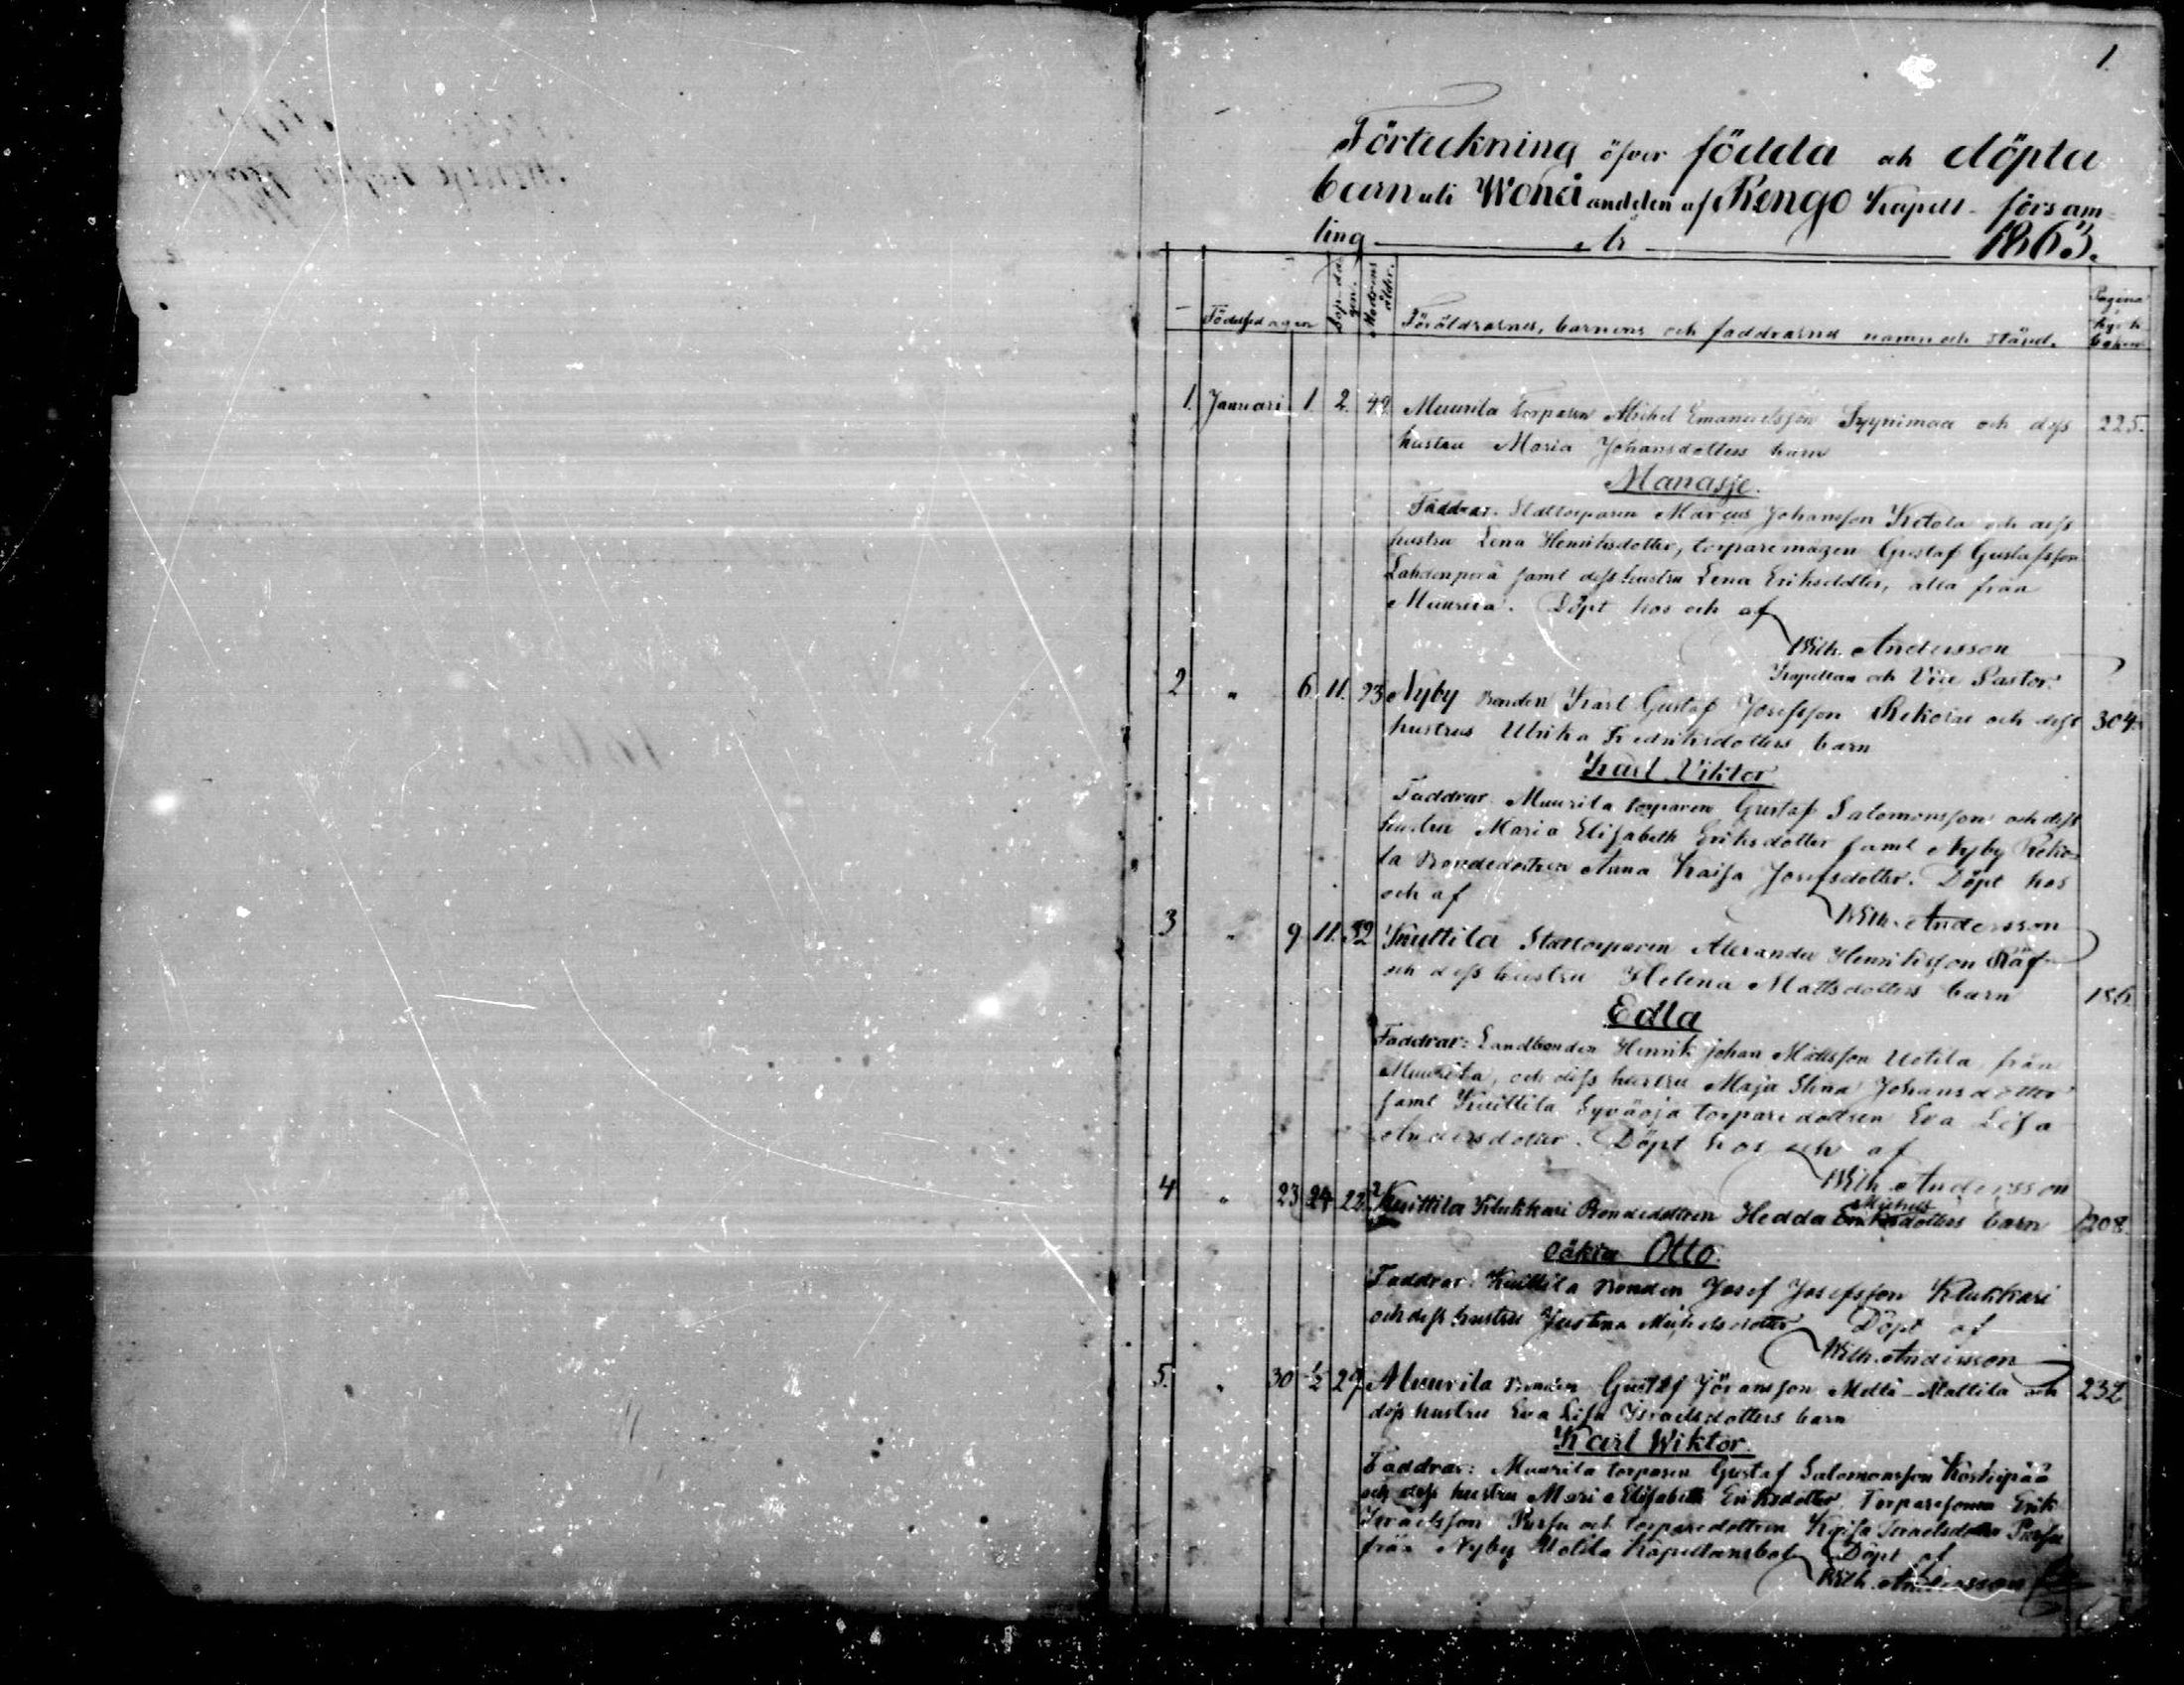 1.
Förteckning öfver födda och döpta
barn uti Wånå andelen af Rengo Kapell-försam-
ling År 1863.
Födelsedagen
Dop-da-
gen.
Modrens
ålder.
Föräldrarnes, barnens och faddrarnes namn och stånd.
Pagina
kyrk
boken
1. Januari 1. 2. 49. Muurila torparen Michel Emanuelsson Syynimaa och dess 225.
hustru Maria Johansdotters barn
Manasse.
Faddrar: Stattorparen Marcus Johansson Ketola och dess
hustru Lena Henriksdotter, torparemågen Gustaf Gustafsson
Lahdenperä samt dess hustru Lena Eriksdotter, alla från
Muurila. Döpt hos och af
Wilh. Andersson
Kapellan och Vice Pastor.
2 " 6. 11. 23 Nyby Bonden Karl Gustaf Josefsson Rekola och dess 304.
hustrus Ulrika Fredriksdotters barn
Karl Viktor
Faddrar Muurila torparen Gustaf Salomonsson och dess
hustru Maria Elisabeth Eriksdotter samt Nyby Reko-
la Bondedottren Anna Kaisa Josefsdotter. Döpt hos
och af
Wilh. Andersson
3 " 9 11. 32 Kuittila Stattorparen Alexander Henriksson Räf
och dess hustru Helena Mattsdotters barn 186
Edla
Faddrar: Landbonden Henrik Johan Mattsson Uotila, från
Muurila, och dess hustru Maja Stina Johansdotter
samt Kuittila Syväoja torparedottren Eva Lisa
Andersdotter. Döpt hos och af
Wilh. Andersson
Michels
4 " 23 24 22 Kuittila Klukkari Bondedottren Hedda Eriksdotters barn 208.
oäkta Otto.
Faddrar: Kuittila Bonden Josef Josefsson Klukkari
och dess hustru Justina Michelsdotter Döpt af
Wilh. Andersson
5. " 30 1/2 29 Muurila Bonden Gustaf Göransson Mellä-Mattila och 232
dess hustru Eva Lisa Israelsdotters barn
Karl Wiktor.
Faddrar: Muurila torparen Gustaf Salomonsson Koskipää
och dess hustru Maria Elisabeth Eriksdotter, Torparesonen Erik
Israelsson Pursu och torparedottren Kaisa Israelsdotter Pursu
från Nyby Kapellansbol Döpt af
Wilh. Andersson